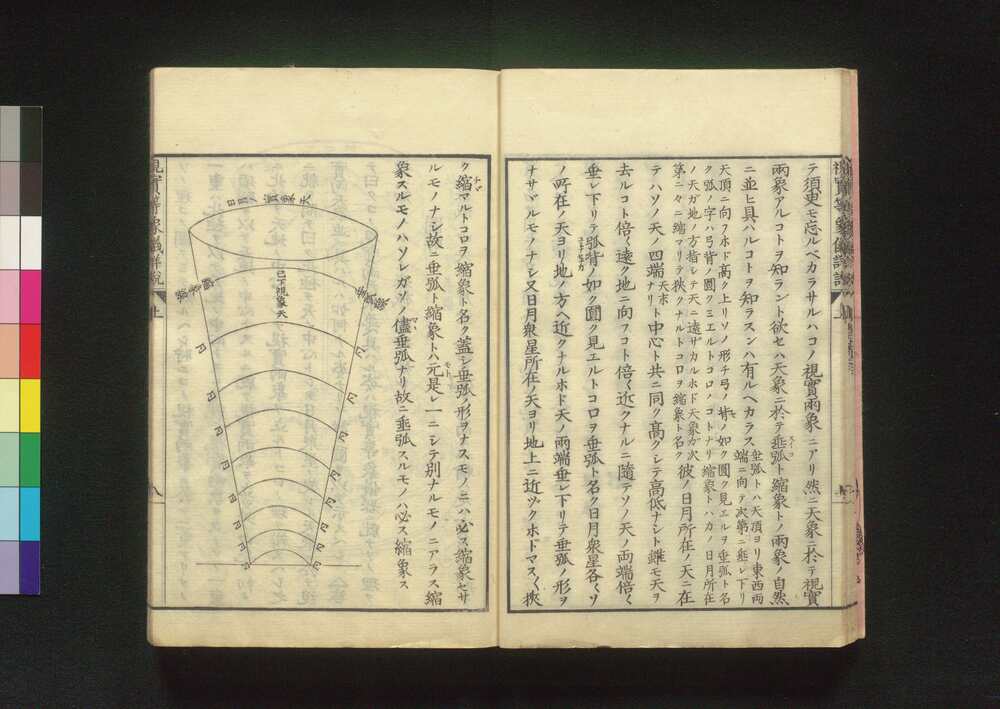 テ須臾モ忘ルベカラサルハコノ視實兩象ニアリ然ニ天象ニ於テ視實
兩象アルコトヲ知ラント欲セハ天象ニ於テ垂弧ト縮象トノ兩象ノ自然
ニ並ヒ具ハルコトヲ知ラスンハ有ルヘカラス
垂弧トハ天頂ヨリ東西兩
端ニ向テ次第ニ垂レ下リ
天頂ニ向フホド高ク上リソノ形チ弓ノ背ノ如ク圓ク見エルヲ垂弧ト名
ク弧ノ字ハ弓背ノ圓クミエルトコロノコトナリ縮象トハカノ日月所在
ノ天ガ地ノ方指シテ天ニ遠ザカルホド天象ガ次
第ニ々ニ縮マリテ狹クナルトコロヲ縮象ト名ク
彼ノ日月所在ノ天ニ在
テハソノ天ノ四端
天末
ナリ
ト中心ト共ニ同ク高クシテ高低ナシト雖モ天ヲ
去ルコト倍〱遠ク地ニ向フコト倍〱近クナルニ隨テソノ天ノ両端倍〱
垂レ下リテ弧背ノ如ク圓ク見エルトコロヲ垂弧ト名ク日月衆星各〱ソ
ノ所在ノ天ヨリ地ノ方ヘ近クナルホド天ノ兩端垂レ下リテ垂弧ノ形ヲ
ナサヾルモノナシ又日月衆星所在ノ天ヨリ地上ニ近ヅクホドマス〱狹
ク縮マルトコロヲ縮象ト名ク蓋シ垂弧ノ形ヲナスモノニハ必ス縮象セサ
ルモノナシ故ニ垂弧ト縮象トハ元是レ一ニシテ別ナルモノニアラス縮
象スルモノハソレガソノ儘垂弧ナリ故ニ垂弧スルモノハ必ス縮象ス
日月所在實象天
已下視象天
視實等象儀詳說
上
八